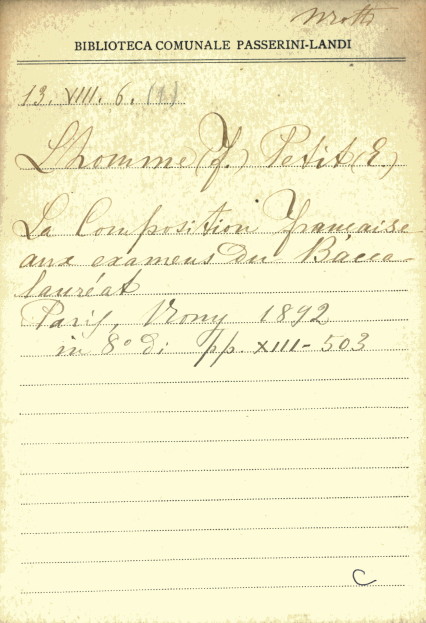 BIBLIOTECA COMUNALE PASSERINI-LANDI
13. XIII. 6. (1)
Lhomme (F.) Petit (E.)
La Composition française
aux examens du Bacca-
lauréat
Paris, Vrony 1892
in 8° di pp. XIII-503
C